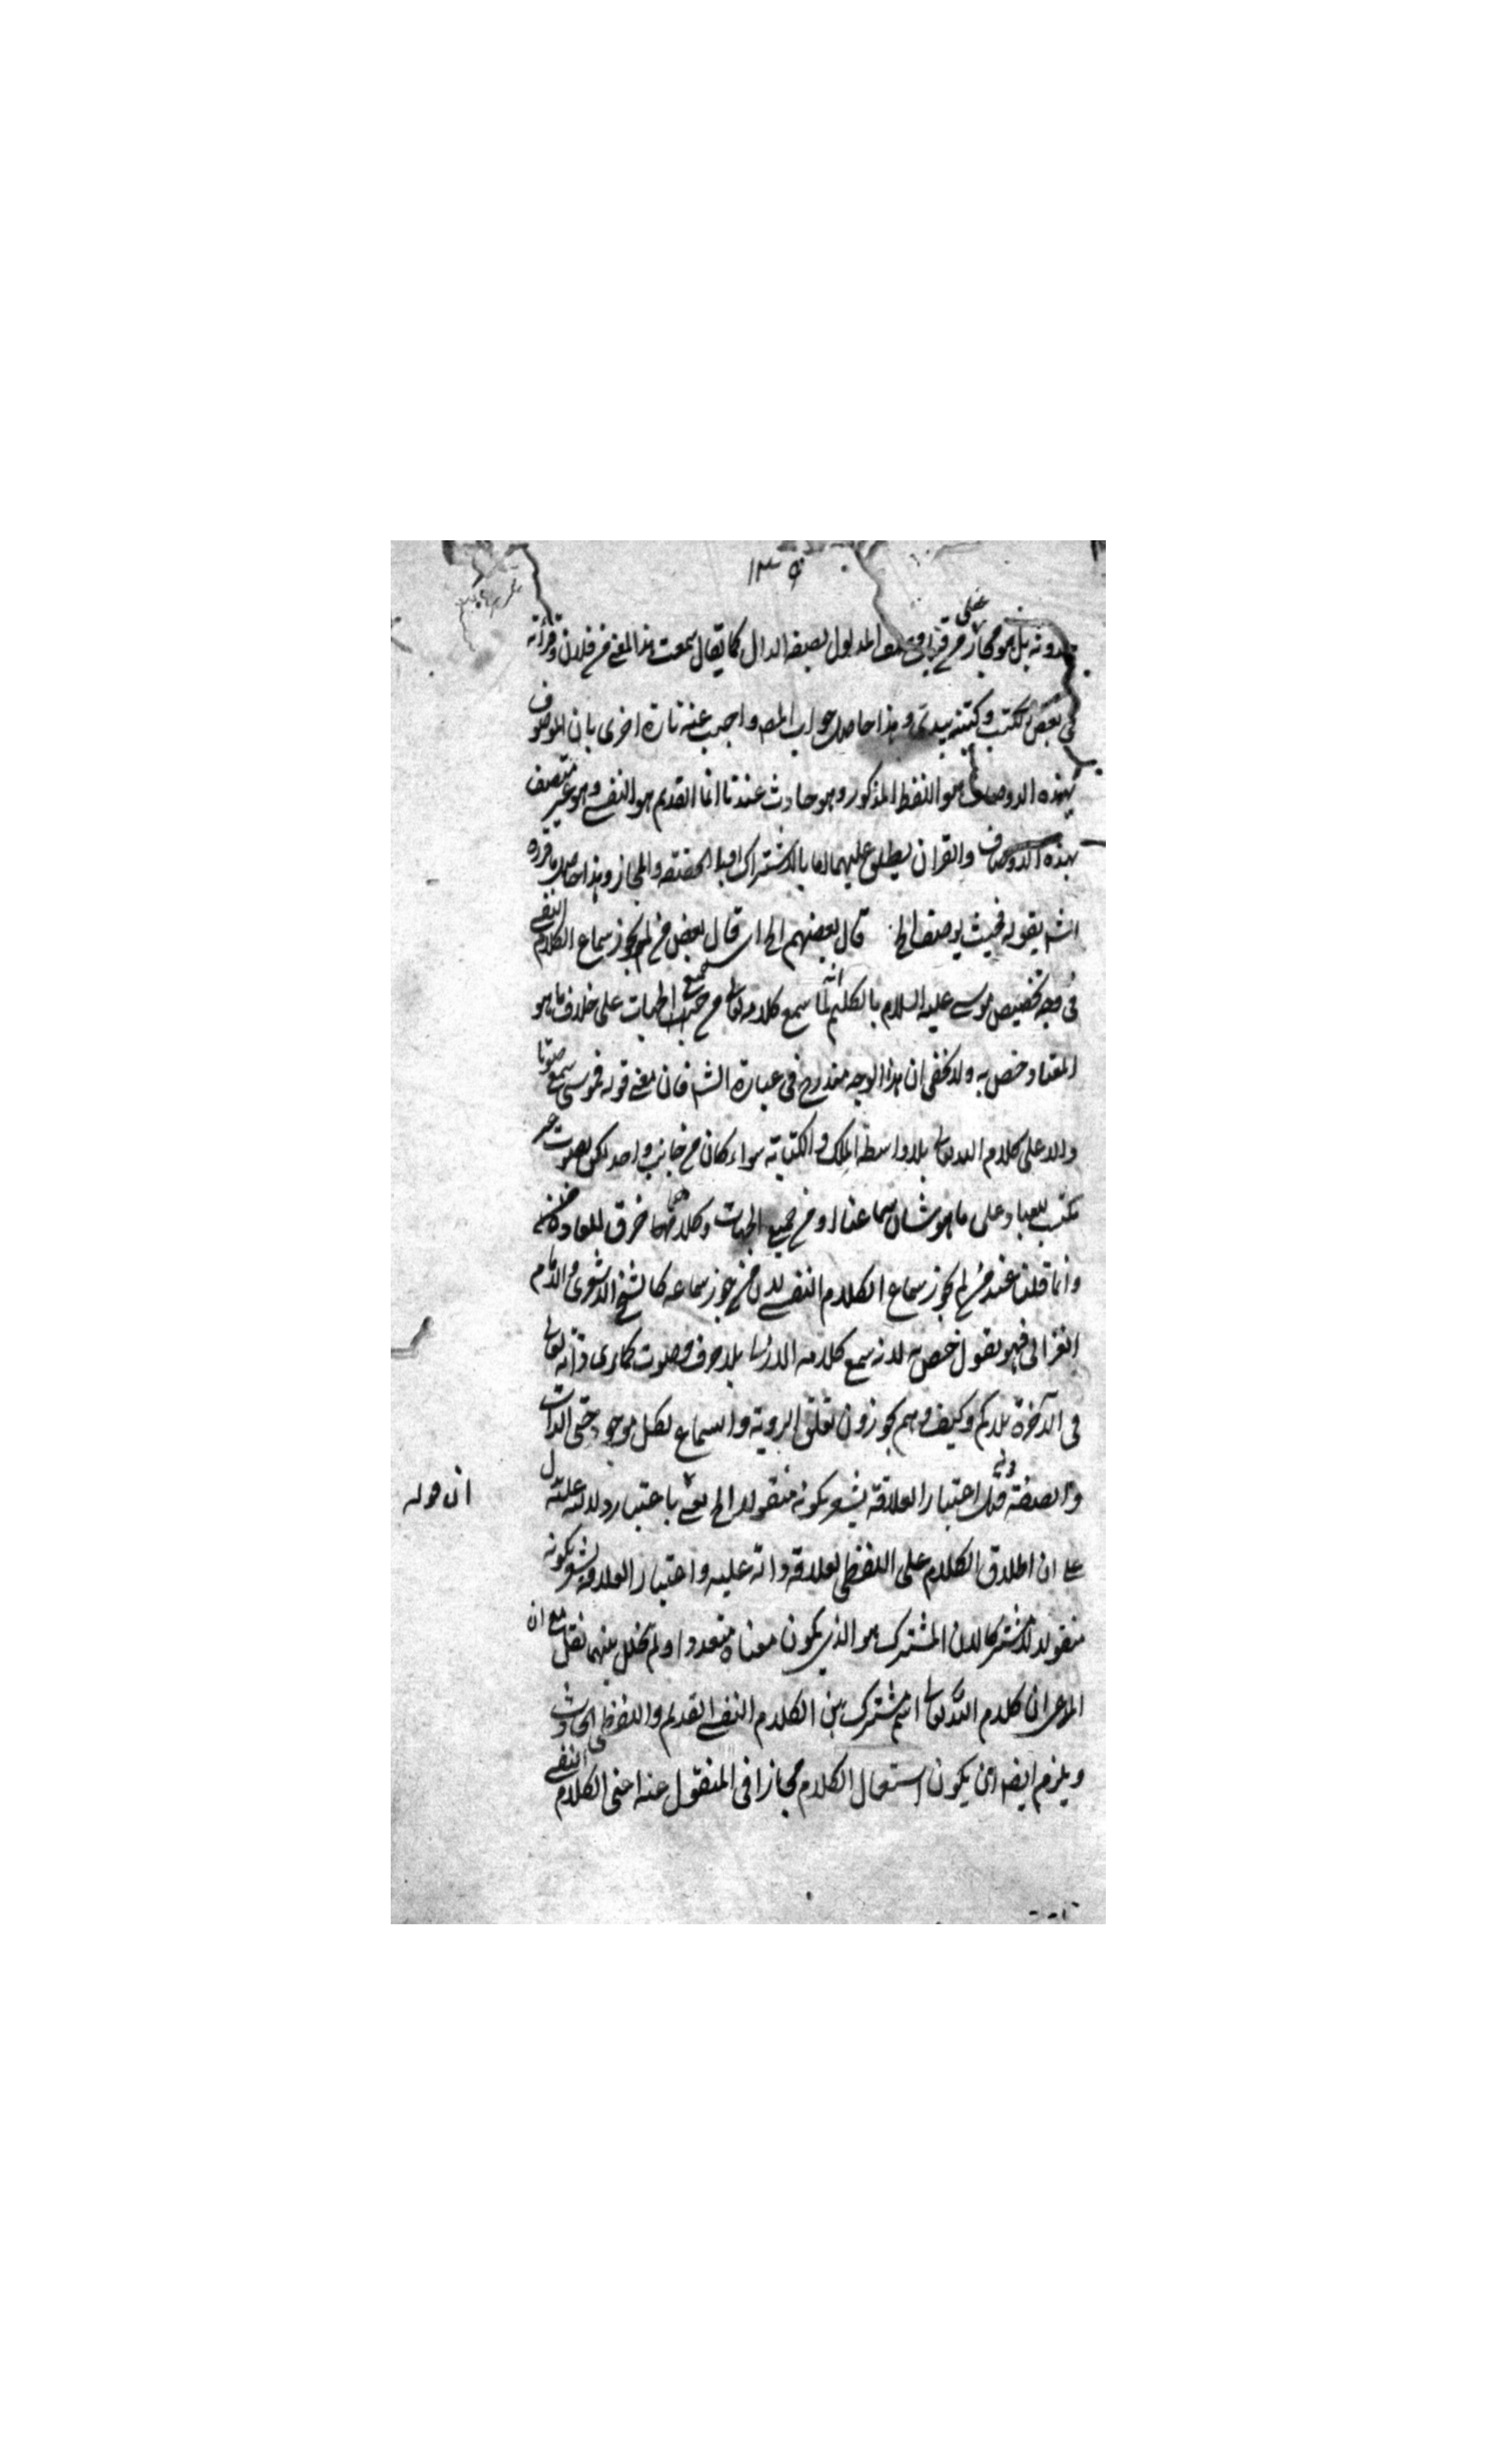 ١٣٩
حدوثه بل هو مجاز من قبيل وصف المدلول بصفة الدال كما يقال سمعت هذا المعنى من فلان وقرأته
فى بعض الكتب وكتبته بيدى وهذا حاصل جواب المص واجيب عنه تارة اخرى بان الموصوف
بهذه الاوصاف هو اللفظ المذكور وهو حادث عندنا انما القديم هو النفسى وهو غير متصف
بهذه الاوصاف والقران يطلق عليهما اما بالاشتراك او بالحقيقة والمجاز وهذا حاصل ما قرره
الش بقوله فحيث يوصف الخ قال بعضهم الخ اى قال بعض من لم يجوز سماع الكلام النفسى
فى وجه تخصيص موسى عليه السلام بالكليم انه لما سمع كلامه تعالى من جميع الجهات على خلاف ما هو
المعتاد خص به ولا يخفى ان هذا الوجه مندرج فى عبارة الش فان معنى قوله فموسى سمع صوتا
دالا على كلام الله تعالى بلا واسطة الملك والكتابة سواء كان من جانب واحد لكن بصوت غير
مكتسب للعباد على ما هو شان سماعنا او من جميع الجهات وكلاهما خرق للعادة
وانما قلنا عند من لم يجوز سماع الكلام النفسى لان من جوز سماعه كالشيخ الاشعرى والامام
الغزالى فهو يقول خص به لانه سمع كلامه الازلى بلا حرف وصوت كما يرى ذاته تعالى
فى الآخرة بلا كم وكيف وهم يجوزون تعلق الروية والسماع بكل موجود حتى الذات
والصفة قوله اعتبار العلاقة يشعر بكونه منقولا الخ يعنى باعتبار دلالته عليه
على ان اطلاق الكلام على اللفظى لعلاقة دالة عليه واعتبار العلاقة يشعر بكونه
منقولا لا مشتركا لان المشترك هو الذى يكون معناه متعددا ولم يتخلل بينهما نقل مع ان
المدعى ان كلام الله تعالى اسم مشترك بين الكلام النفسى القديم واللفظى الحادث
ويلزم ايضا ان يكون استعمال الكلام مجازا فى المنقول عنه اعنى الكلام النفسى